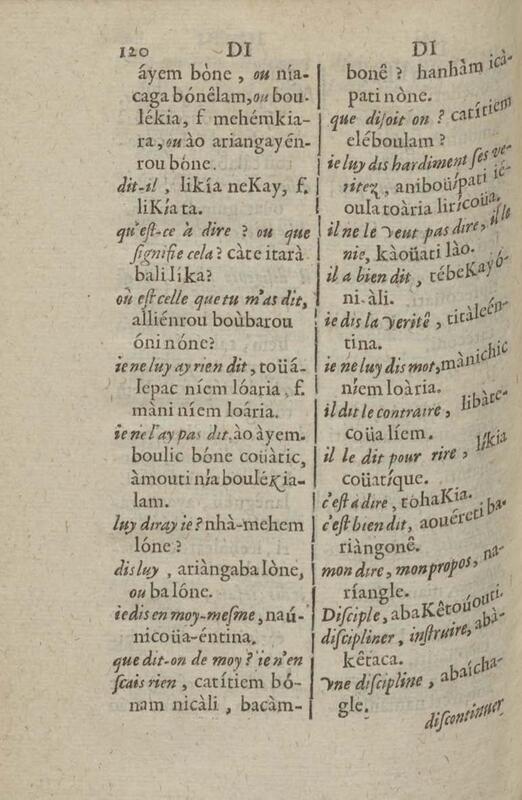 120 DI DI
áyem bòne, ou nía-
caga bónêlam, ou bou-
lékia, f mehémkia-
ra, ou ào ariangayén-
rou bóne.
dit-il, likía neKay, f.
liKia ta.
qu'eſt-ce à dire ? ou que
ſignifie cela ? càte itarà
balilika?
où eſt celle que tu m'as dit,
alliénrou boùbarou
óni nóne?
ie ne luy ay rien dit, toüá-
lepac níem lóaria, f.
màni níem loária.
ie ne l'ay pas dit. ào àyem-
boulic bòne coüàtic,
àmouti nia bouléKia-
lam.
luy diray ie ? nhà-mehem
lóne ?
dis luy, ariàngaba lòne,
ou ba lóne.
ie dis en moy-meſme, naú-
nicoüa-éntina.
que dit-on de moy ? ie n'en
ſcais rien, catítiem bó-
nam nicàli, bacàm-
bonê ? hanhàm icà-
pati nòne.
que diſoit on ? catítiem
eléboulam ?
ie luy dis hardiment ſes ve-
ritez, aniboüſpati ié-
oula toària liricoüa.
il ne le veut pas dire, il le
nie, kàoüati lào.
il a bien dit, tébeKayó-
ni-àli.
ie dis la verité, titàleén-
tina.
ie ne luy dis mot, mànichic
níem loària.
il dit le contraire, libàte-
coüa líem.
il le dit pour rire, líkia
coüatíque.
c'eſt a dire, tohaKia.
c'eſt bien dit, aouéreti ba-
riàngonê.
mon dire, mon propos, na-
ríangle.
Diſciple, abaKêtoúouti.
diſcipliner, inſtruire, abà-
kêtaca.
vne diſcipline, abaícha-
gle.
diſcontinuer